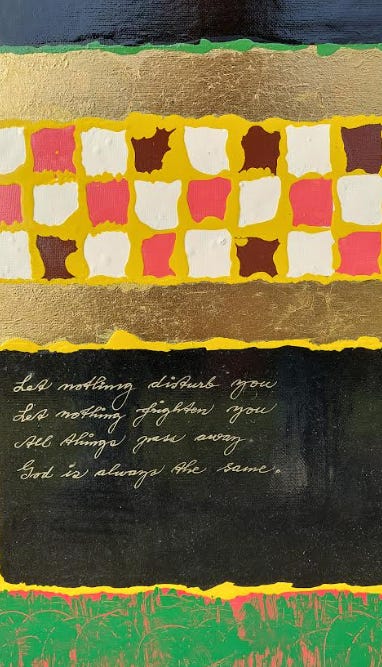 Let nothing disturb you
Let nothing frighten you
All things pass away.
God is always the same.